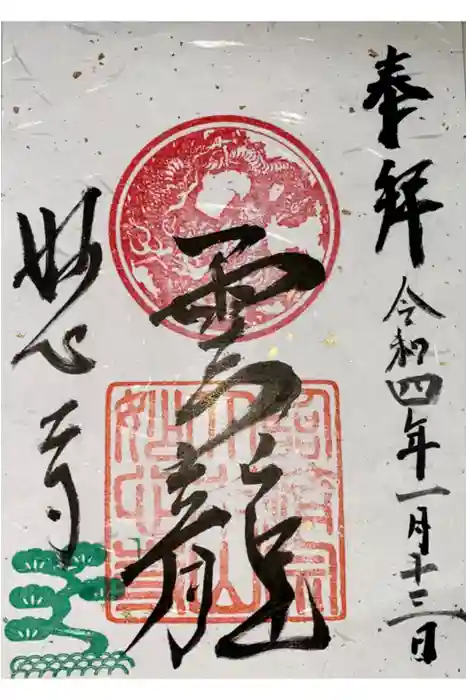 奉拝
令和四年一月十三日
雲龍
妙心寺